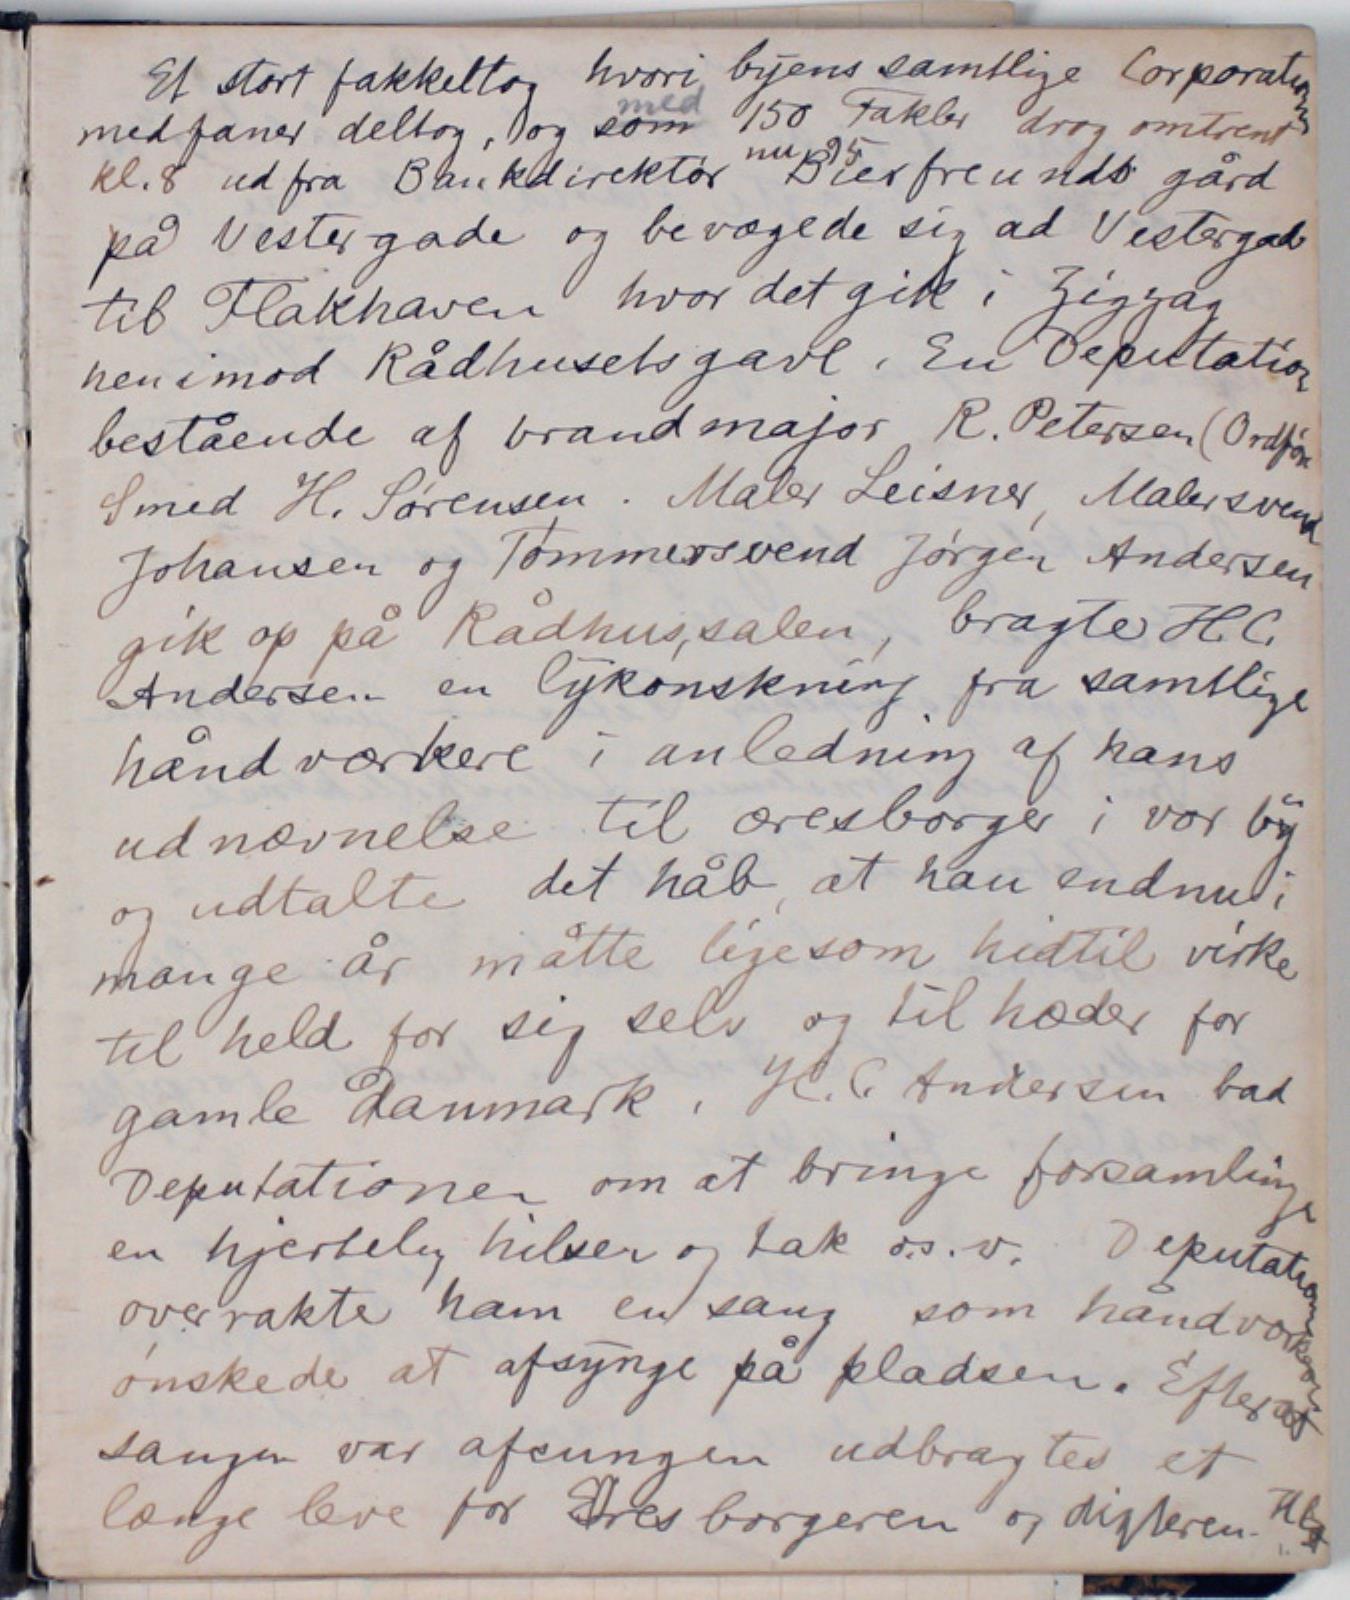 Et stort fakkeltog hvori byens samtlige Corporationer
med faner deltog, og som med 150 Fakler drog omtrent
kl. 8 ud fra Bankdirektør nu 95 Bierfreunds gård
på Vestergade og bevægede sig ad Vestergade
til Flakhaven hvor det gik i Zigzag
hen imod Rådhusets gavl. En Deputation
bestående af brandmajor R. Petersen (Ordfører
Smed H. Sørensen. Maler Leisner, Malersvend
Johansen og Tømmersvend Jørgen Andersen
gik op på Rådhussalen, bragte H.C.
Andersen en lykønskning fra samtlige
håndværkere i anledning af hans
udnævnelse til æresborger i vor by
og udtalte det håb, at han endnu i
mange år måtte ligesom hidtil virke
til held for sig selv og til hæder for
gamle Danmark. H.C. Andersen bad
Deputationen om at bringe forsamlingen
en hjertelig hilsen og tak o.s.v. Deputationen
overrakte ham en sang som håndværkerne
ønskede at afsynge på pladsen. Efter at
sangen var afsungen udbragtes et
længe leve for Æresborgeren og digteren.